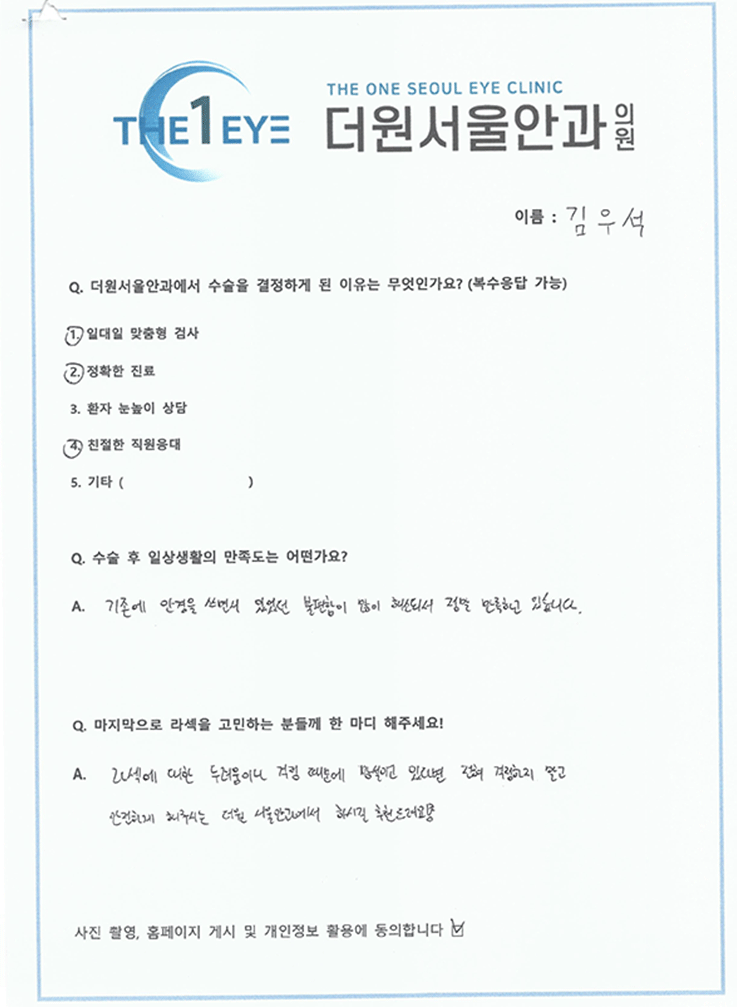 THE 1 EYE
THE ONE SEOUL EYE CLINIC
더원서울안과의원
이름 : 김우석
Q. 더원서울안과에서 수술을 결정하게 된 이유는 무엇인가요? (복수응답 가능)
1. 일대일 맞춤형 검사
2. 정확한 진료
3. 환자 눈높이 상담
4. 친절한 직원응대
5. 기타 ( )
Q. 수술 후 일상생활의 만족도는 어떤가요?
A. 기존에 안경을 쓰면서 있었던 불편함이 많이 해소되서 정말 만족하고 있습니다.
Q. 마지막으로 라섹을 고민하는 분들께 한 마디 해주세요!
A. 라섹에 대한 두려움이나 걱정 때문에 망설이고 있다면 전혀 걱정하지 말고
안전하게 해주시는 더원 서울안과에서 하시길 추천드려요
사진 촬영, 홈페이지 게시 및 개인정보 활용에 동의합니다